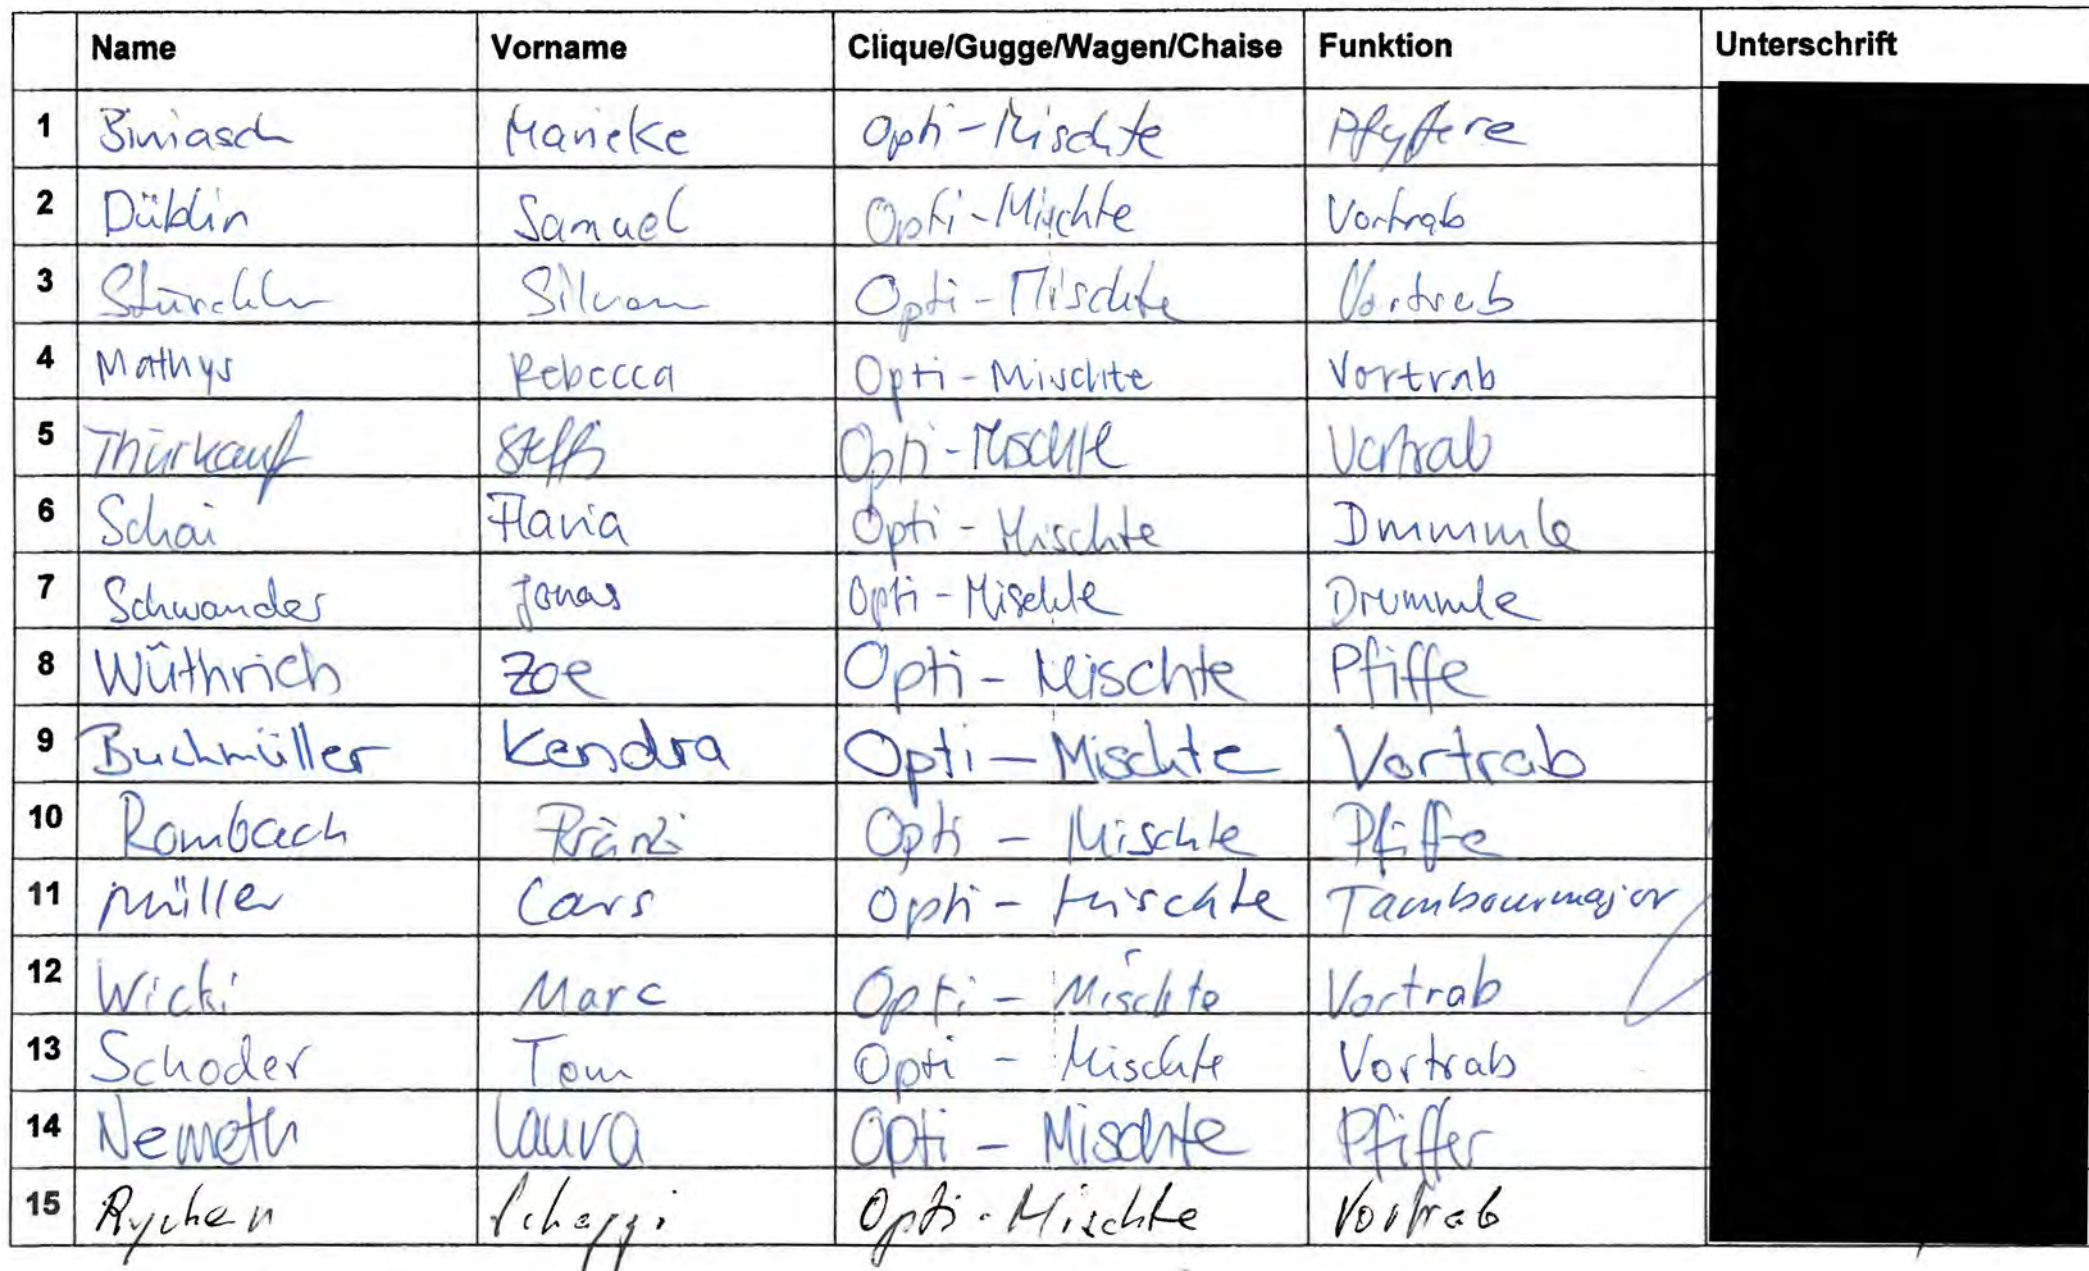 Name Vorname Clique/Gugge/Wagen/Chaise Funktion Unterschrift
1 Biniasch Marieke Opti-Mischte Pfyffere
2 Düblin Samuel Opti-Mischte Vortrab
3 Stürchler Silvan Opti-Mischte Vortrab
4 Mathys Rebecca Opti-Mischte Vortrab
5 Thürkauf Steffi Opti-Mischte Vortrab
6 Schai Flavia Opti-Mischte Drummle
7 Schwander Jonas Opti-Mischte Drummle
8 Wüthrich Zoe Opti-Mischte Pfiffe
9 Buchmüller Kendra Opti-Mischte Vortrab
10 Rombach Fränzi Opti-Mischte Pfiffe
11 Müller Lars Opti-Mischte Tambourmajor
12 Wicki Marc Opti-Mischte Vortrab
13 Schoder Tom Opti-Mischte Vortrab
14 Nemeth Laura Opti-Mischte Pfiffer
15 Rychen Opti-Mischte Vortrab